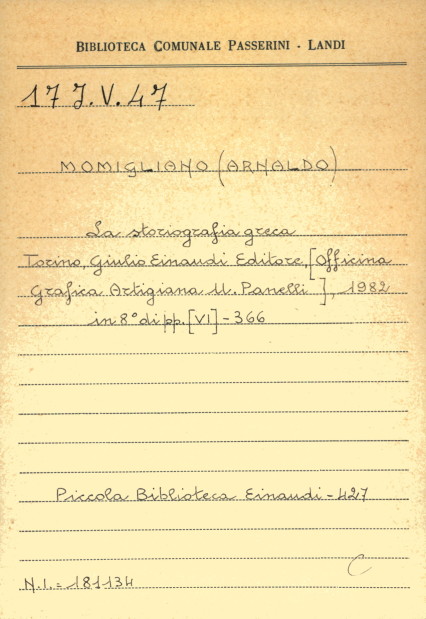 BIBLIOTECA COMUNALE PASSERINI - LANDI
17 J.V.47
MOMIGLIANO (ARNALDO)
La storiografia greca
Torino, Giulio Einaudi Editore, [Officina
Grafica Artigiana U. Panelli], 1982
in 8° di pp. [VI] - 366
Piccola Biblioteca Einaudi - 427
C
N.I. = 181134